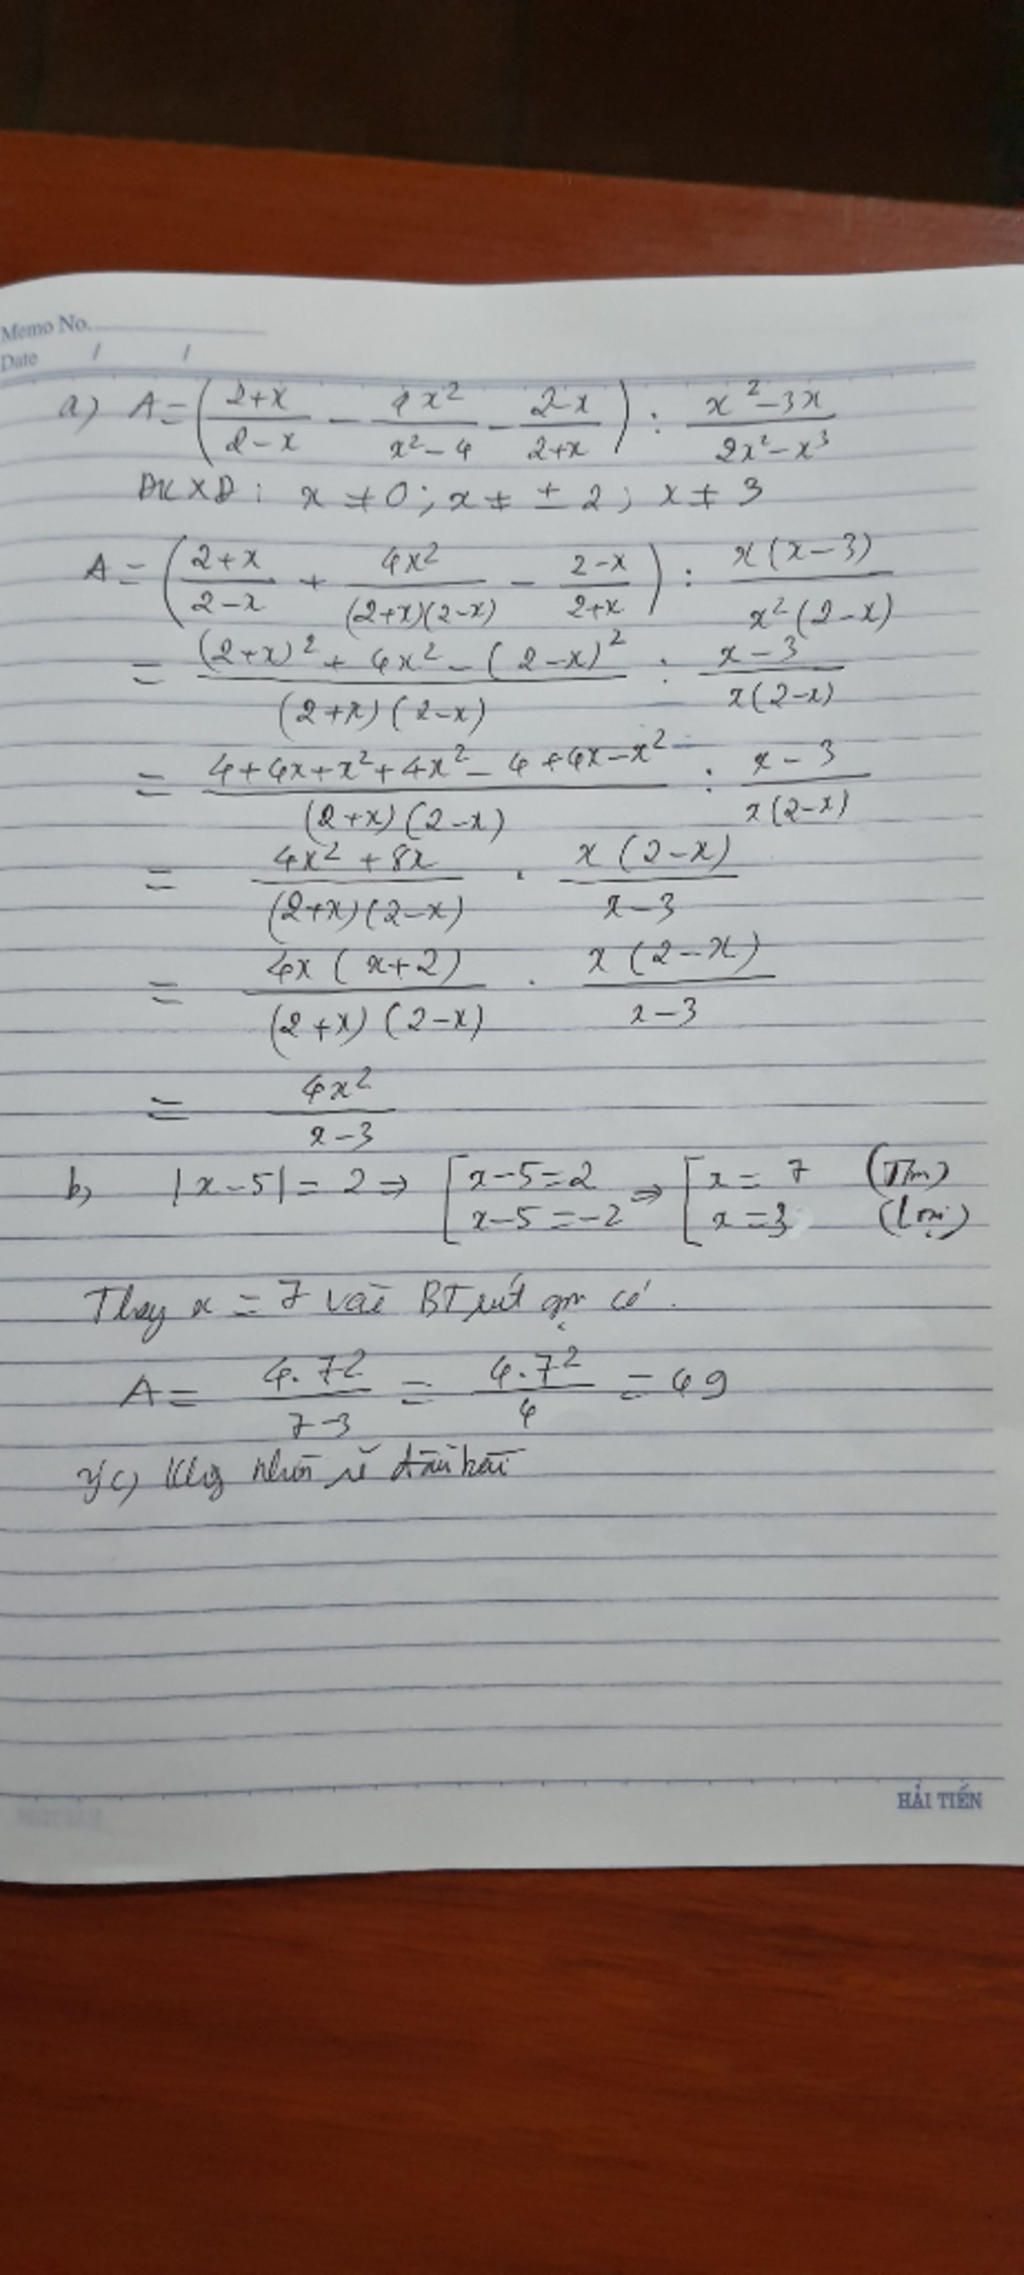 Memo No.
Date / /
a) A = ( (2+x)/(2-x) - 4x²/(x²-4) - (2-x)/(2+x) ) : (x²-3x)/(2x²-x³)
ĐKXĐ : x ≠ 0 ; x ≠ ± 2 ; x ≠ 3
A = ( (2+x)/(2-x) + 4x²/((2+x)(2-x)) - (2-x)/(2+x) ) : x(x-3)/(x²(2-x))
= ((2+x)² + 4x² - (2-x)²)/((2+x)(2-x)) : (x-3)/(x(2-x))
= (4+4x+x²+4x²-4+4x-x²)/((2+x)(2-x)) : (x-3)/(x(2-x))
= (4x²+8x)/((2+x)(2-x)) . x(2-x)/(x-3)
= 4x(x+2)/((2+x)(2-x)) . x(2-x)/(x-3)
= 4x²/(x-3)
b) |x-5| = 2 ⇒ [ x-5=2 ; x-5=-2 ⇒ [ x = 7 (Tm) ; x = 3 (Loại)
Thay x = 7 vào BT rút gọn có.
A = 4.7²/(7-3) = 4.7²/4 = 49
ý c) Không nhìn rõ đầu bài
HẢI TIẾN